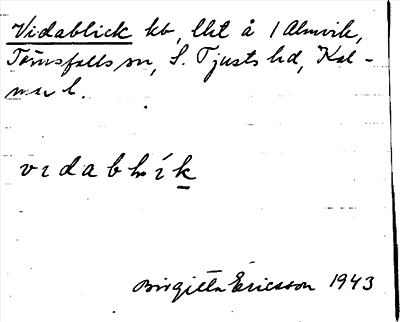 Vidablick kb, lht å 1 Almvik,
Törnsfalls sn, S. Tjusts hd, Kal-
mar l.
vıdablík
Birgitta Ericsson 1943